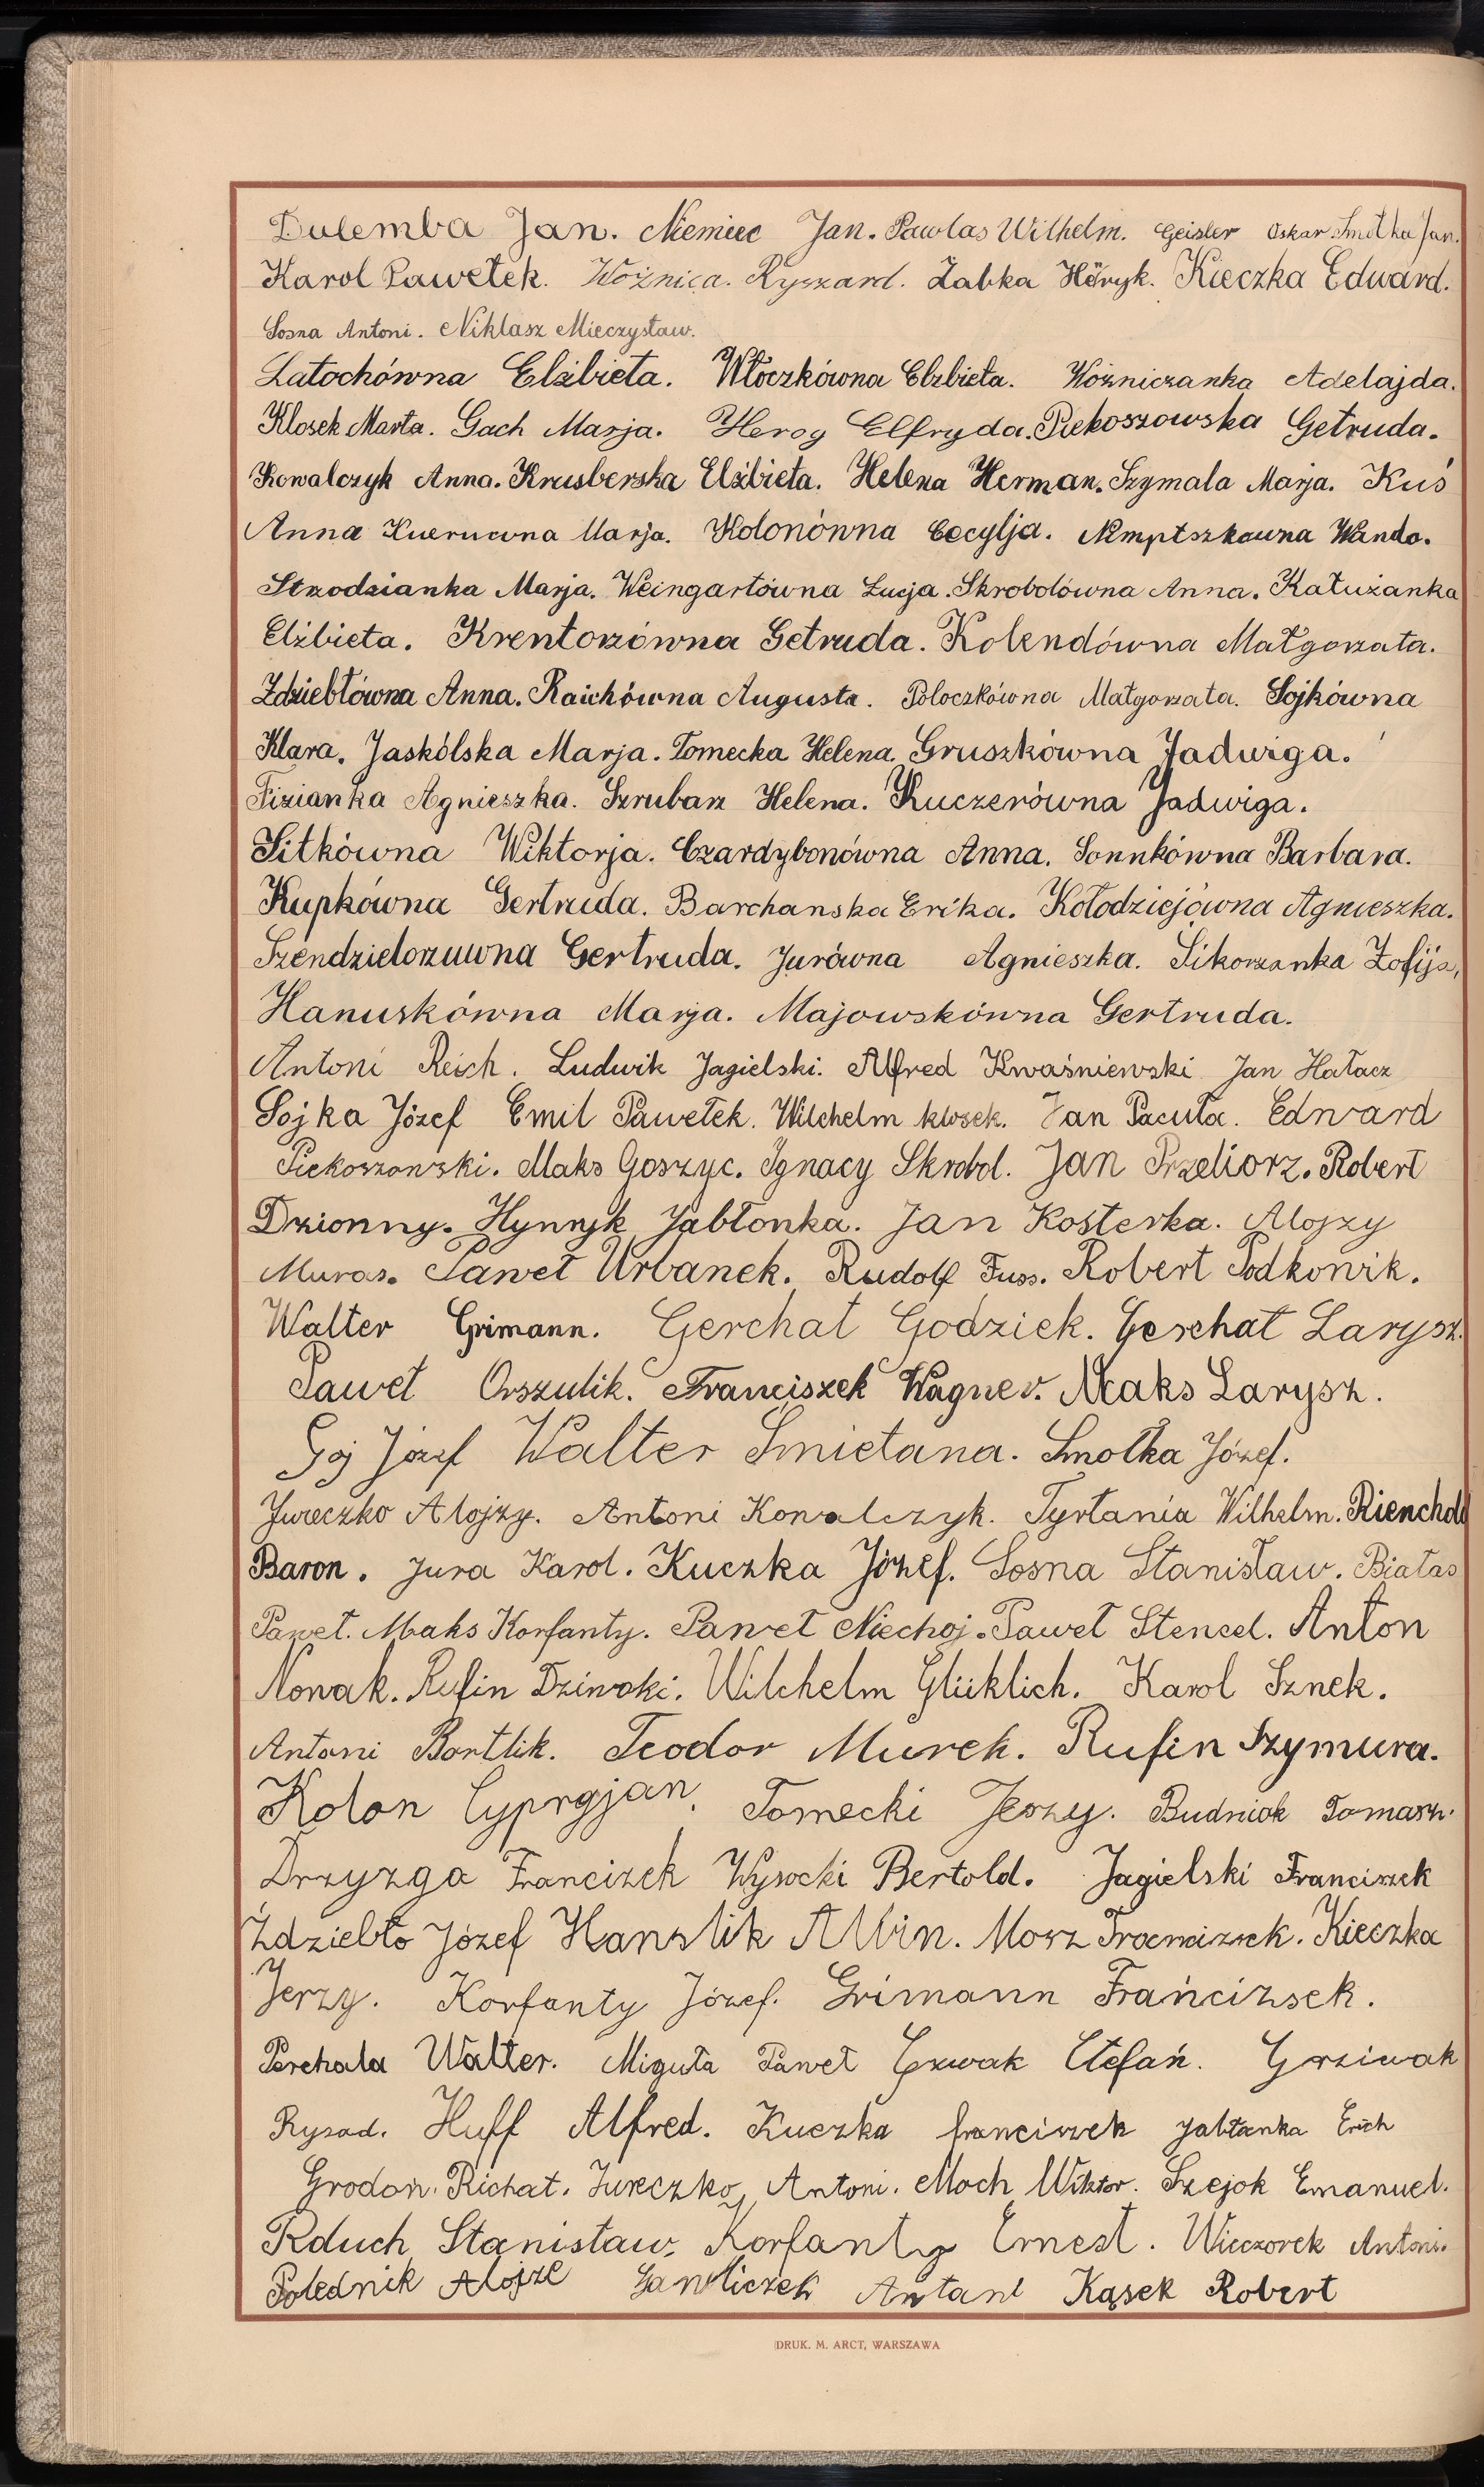 Dulemba Jan. Niemiec Jan. Pawlas Wilhelm. Geisler Oskar. Smotka Jan.
Karol Pawełek. Woźnica. Ryszard. Żabka Höryk. Kieczka Edward.
Sosna Antoni. Niklasz Mieczysław.
Latochówna Elżbieta. Włoczkówna Elzbieta. Wożniczanka Adelajda.
Klosek Marta. Gach Marja. Herog Elfryda. Piekoszowska Getruda.
Kowalczyk Anna. Krusberska Elżbieta. Helena Herman. Szymala Marja. Kuś
Anna Marja. Kolonówna Cecylja. Nemptszkowna Wanda.
Strzodzianka Marja. Weingartówna Łucja. Skrobolówna Anna. Kałużanka
Elżbieta. Krentorzówna Getruda. Kolendówna Małgorzata.
Zdziebłówna Anna. Raichówna Augusta. Poloczkówna Małgorzata. Sojkówna
Klara. Jaskólska Marja. Tomecka Helena. Gruszkówna Jadwiga.
Fizianka Agnieszka. Szrubarz Helena. Kuczerówna Jadwiga.
Sitkówna Wiktorja. Czardybonówna Anna. Sonnkówna Barbara.
Kupkówna Gertruda. Barchanska Erika. Kołodziejówna Agnieszka.
Szendzielorzuwna Gertruda. Jurówna Agnieszka. Sikorzanka Zofija,
Hanuskówna Marja. Majowskówna Gertruda.
Antoni Reich. Ludwik Jagielski. Alfred Kwaśniewski Jan Hałacz
Sojka Józef Emil Pawełek. Wilchelm klosek. Jan Pacuła. Edward
Piekoszowski. Maks Goszyc. Ignacy Skrobol. Jan Przeliorz. Robert
Dzionny. Hynryk Jabłonka. Jan Kosterka. Alojzy
Muras. Paweł Urbanek. Rudolf Fuss. Robert Podkowik.
Walter Grimann. Gerchat Godziek. Gerchat Larysz.
Paweł Orszulik. Franciszek Wagner. Maks Larysz.
Goj Józef Walter Smietana. Smołka Józef.
Jureczko Alojzy. Antoni Kowalczyk. Tyrtania Wilhelm. Rienchold
Baron. Jura Karol. Kuczka Józef. Sosna Stanisław. Białas
Paweł. Maks Korfanty. Paweł Niechoj. Paweł Stencel. Anton
Nowak. Rufin Dziwoki. Wilchelm Glüklich. Karol Sznek.
Antoni Bortlik. Teodor Murek. Rufin Szymura.
Kolon Cyprgjan. Tomecki Jerzy. Budniok Tomasz.
Drzyzga Francizek Wysocki Bertold. Jagielski Franciszek
Żdziebło Józef Hanslik Albin. Mosz Kieczka
Jerzy. Korfanty Józef. Grimann Frańcizsek.
Perchala Walter. Miguła Paweł Stefań. Grziwak
Rysad. Huff Alfred. Kuczka franciszek Jabłanka Erich
Grodoń. Richat. Jureczko Antoni. Moch Wiktor. Szejok Emanuel.
Rduch Stanisław. Korfanty Ernest. Wieczorek Antoni.
Polednik Alojze Gawliczek Antani Kąsek Robert
DRUK. M. ARCT, WARSZAWA